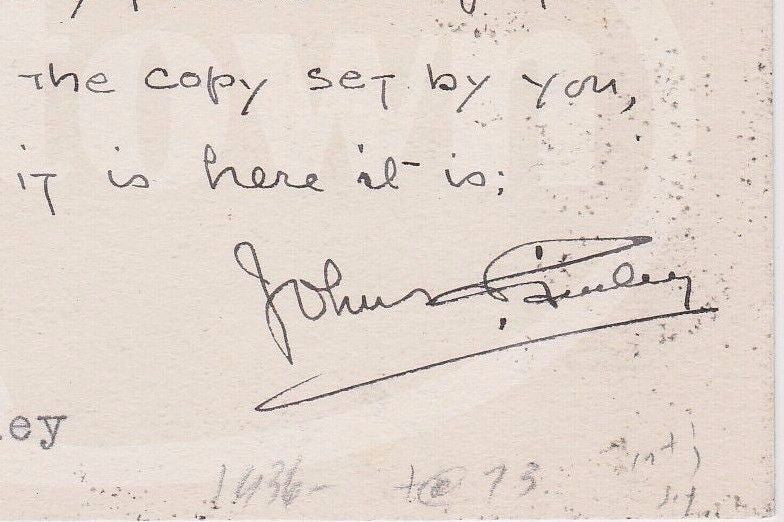 the copy set by you,
it is here it is;
John Finley
ey
1936- +@ 73